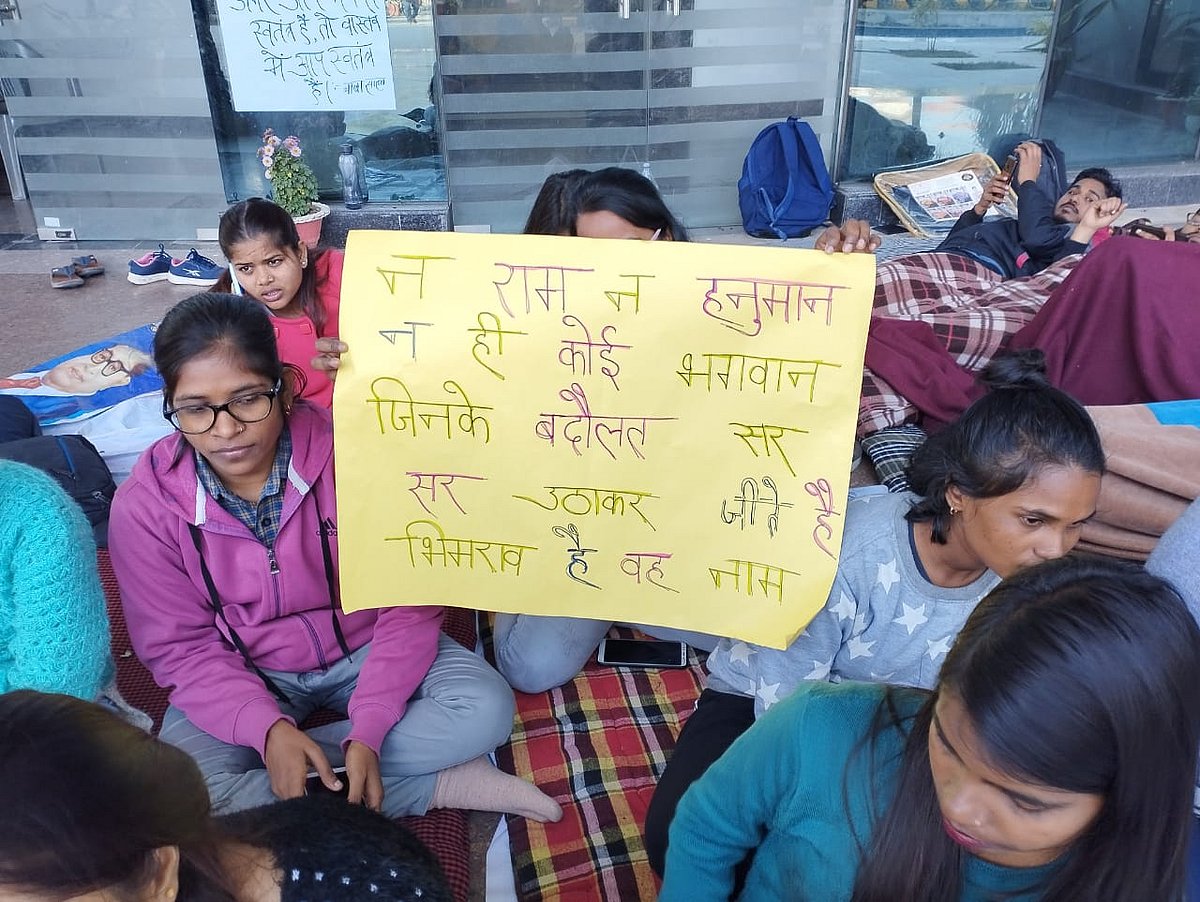 स्वतंत्र है, तो वास्तव
में आप स्वतंत्र
है।
न राम न हनुमान
न ही कोई भगवान
जिनके बदौलत सर
सर उठाकर जीते है
भिमराव है वह नाम
adidas